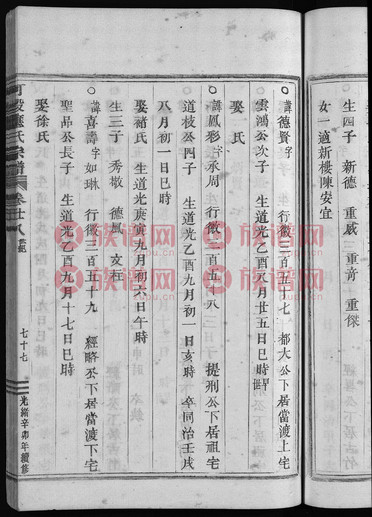 生四子 新德 重威 三重奇 重傑
女一適新樓陳安宜
諱德賢字 行徽三百五十七 都大公下居當渡上宅
雲鴻公次子 生道光乙酉八月廿五日巳時
娶 氏
諱鳳彩字承周 行徽三百五十八 提刑公下居祖宅
道枝公四子 生道光乙酉九月初一日亥時 卒同治壬戌
八月初一日巳時
娶褚氏 生道光庚寅九月初六日午時
生三子 秀樹 德風 文在
諱喜壽字如琳 行徽三百五十九 經略公下居當渡下宅
聖品公長子 生道光乙酉九月十七日巳時
娶徐氏
氏宗譜 卷廿八
七十七
光緒辛卯年續修
族谱网
zupu.cn